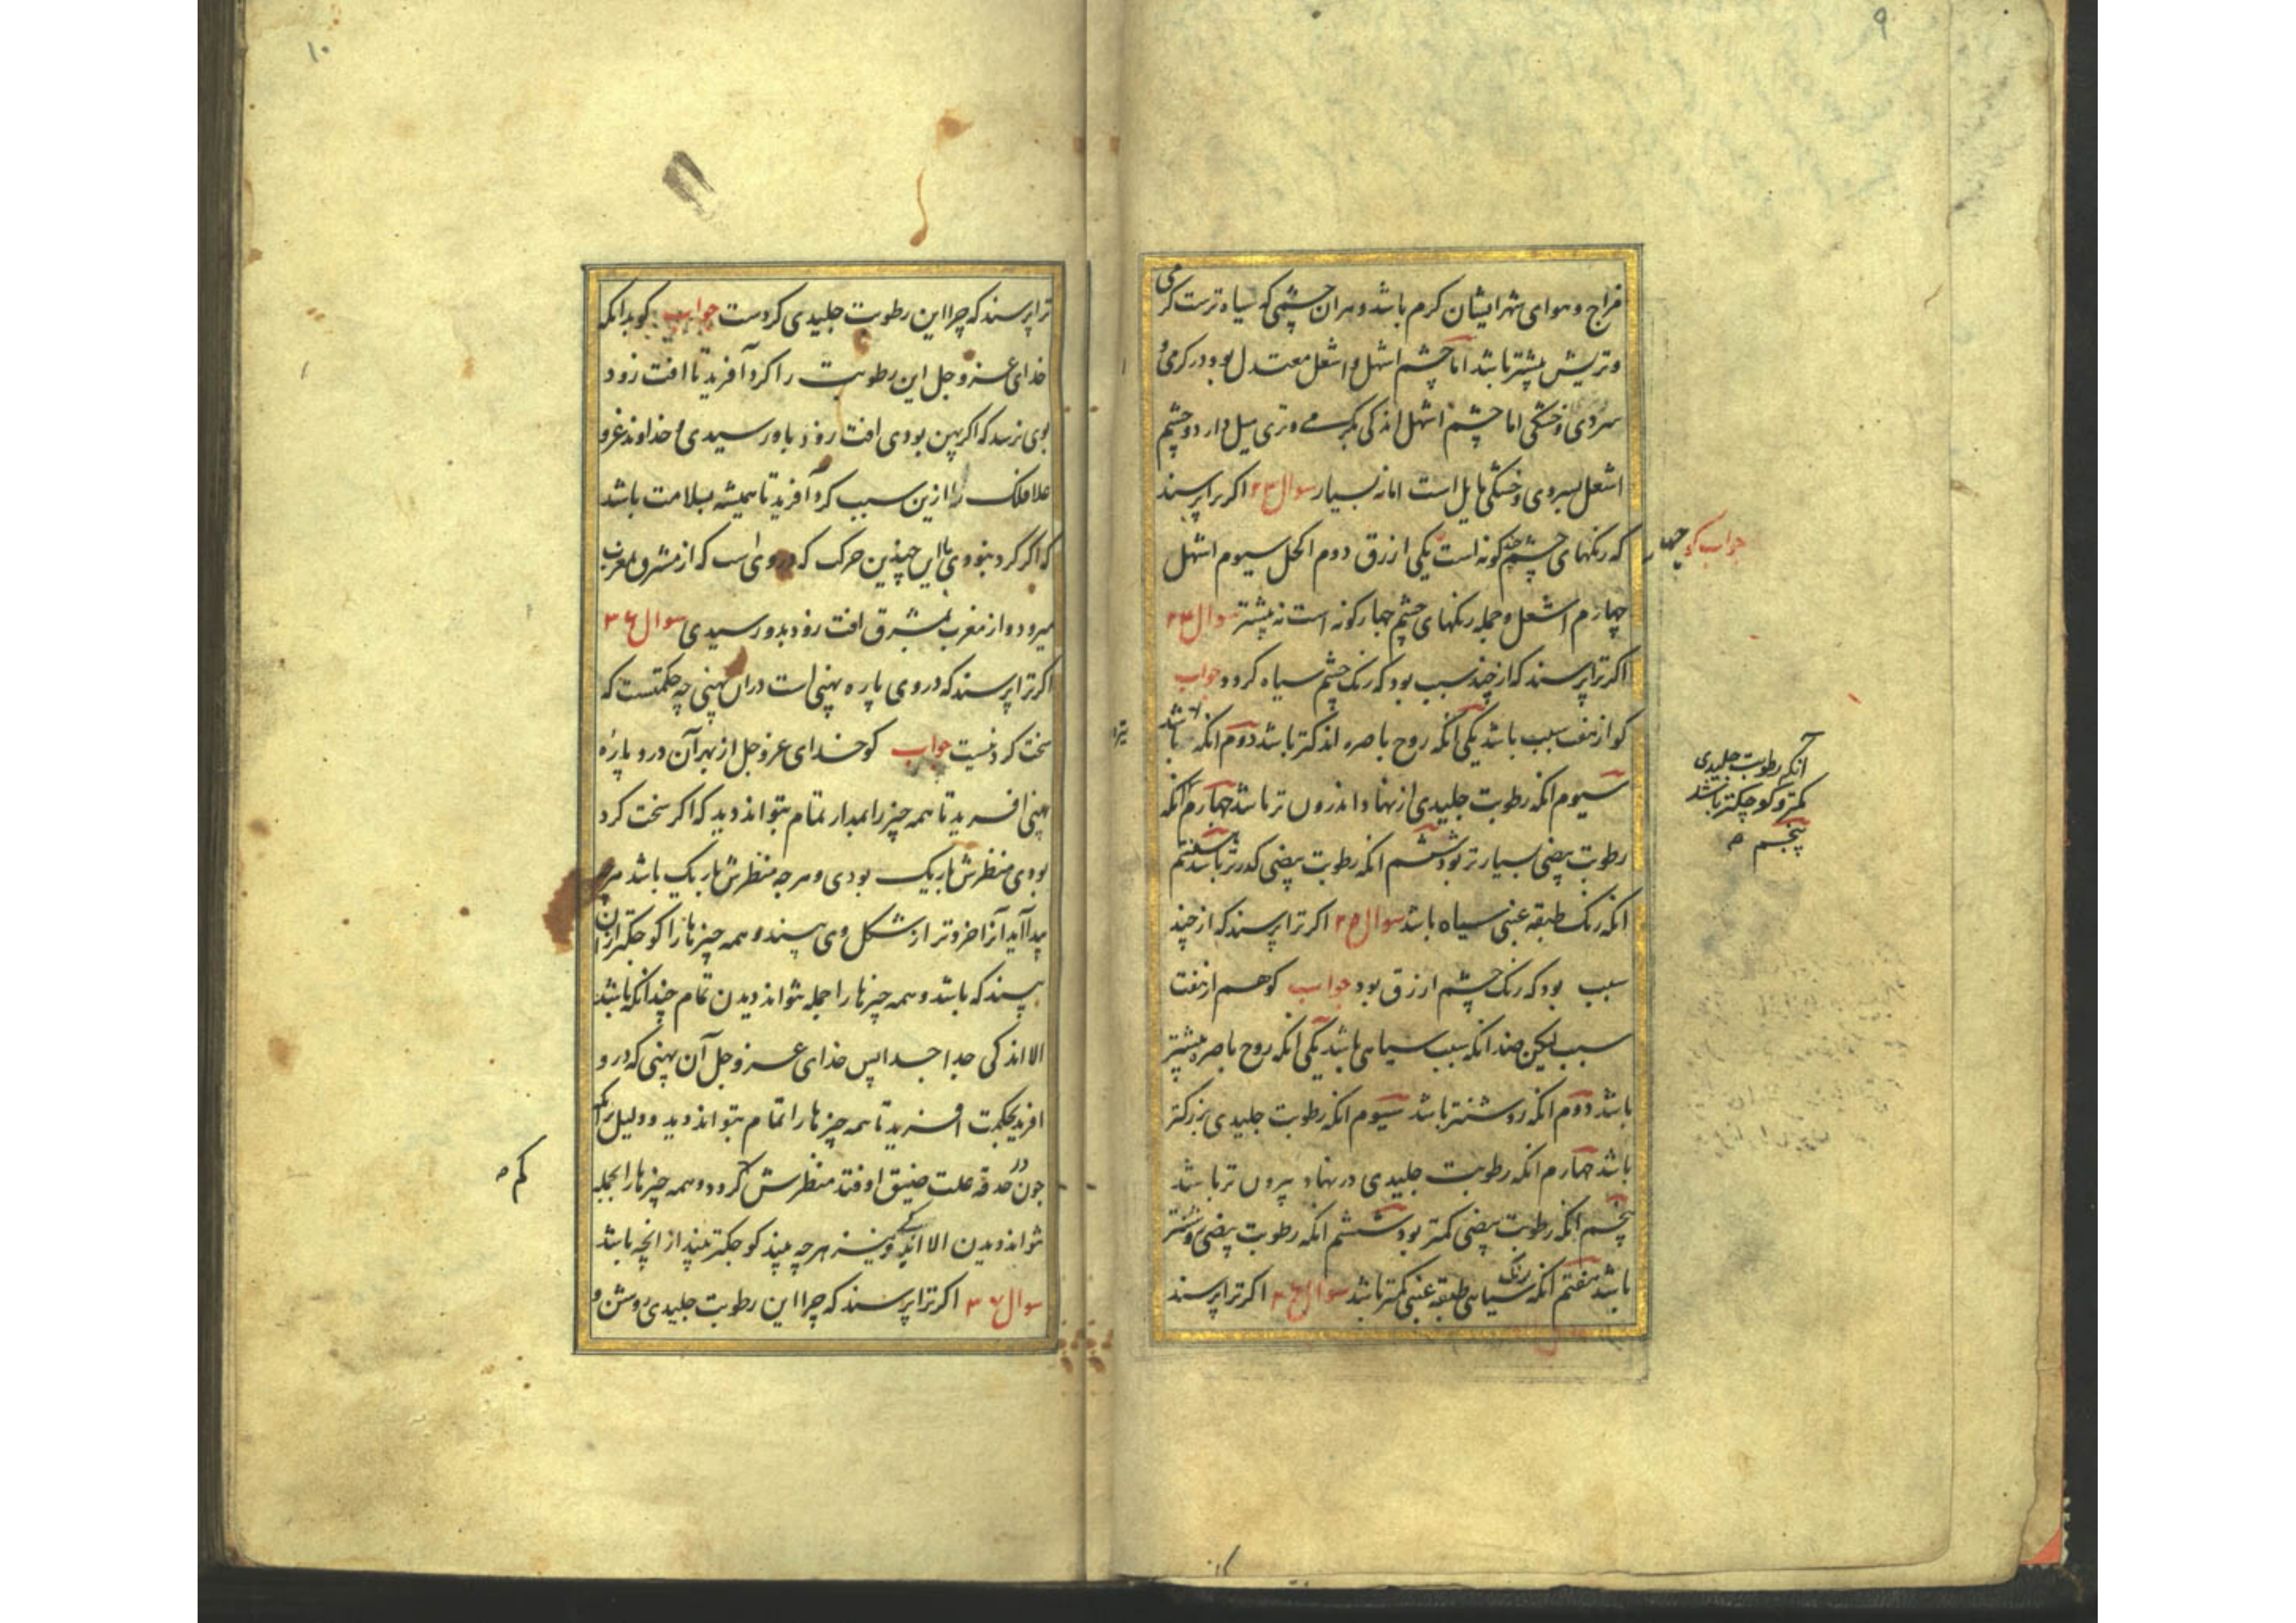 ۹
مزاج و هوای شهر ایشان گرم باشد و هران چشمی که سیاه ترست گرمی
و تریش بیشتر باشد اما چشم اشهل و اشعل معتدل بود در گرمی و
سردی و خشکی اما چشم اشهل اندکی بگرمی و تری میل دارد و چشم
اشعل بسردی و خشکی مایل است اما نه بسیار سوال ۲۳ اکر ترا پرسند
که رنکهای چشم چند کونه است یکی ازرق دوم اکحل سیوم اشهل
جواب کو چهار
چهارم اشعل و جمله رنکهای چشم چهار کونه است نه بیشتر سوال ۲۴
اکر ترا پرسند که از چند سبب بود که رنک چشم سیاه کردد جواب
کو از هفت سبب باشد یکی آنکه روح باصره اندکتر باشد دوم انکه تیره باشد
سیوم انکه رطوبت جلیدی از نهاد اندرون تر باشد چهارم آنکه
آنکه رطوبت جلیدی
کمتر و کوچکتر باشد
پنجم
رطوبت بیضی بسیارتر بود ششم انکه رطوبت بیضی کدرتر باشد هفتم
انکه رنک طبقه عنبی سیاه باشد سوال ۲۵ اکر ترا پرسند که از چند
سبب بود که رنک چشم ازرق بود جواب کو هم از هفت
سبب لیکن ضد انکه سبب سیاهی باشد یکی آنکه روح باصره بیشتر
باشد دوم انکه روشنتر باشد سیوم انکه رطوبت جلیدی بزرکتر
باشد چهارم انکه رطوبت جلیدی در نهاد بیرون تر باشد
پنجم انکه رطوبت بیضی کمتر بود ششم انکه رطوبت بیضی روشنتر
باشد هفتم انکه سیاهی رنک طبقه عنبی کمتر باشد سوال ۲۶ اکر ترا پرسند
۱۰
ترا پرسند که چرا این رطوبت جلیدی کردست جواب کو بدانکه
خدای عز و جل این رطوبت را کرد آفرید تا افت زود
بوی نرسد که اکر پهن بودی افت زود باو رسیدی و خداوند عز و
علا فلک را ازین سبب کرد آفرید تا همیشه بسلامت باشد
که اگر گرد نبودی با این چنین حرکت که در وی است که از مشرق بمغرب
میرود و از مغرب بمشرق افت زود بدو رسیدی سوال ۳۶
اکر ترا پرسند که در وی پاره پهنی است دران پهنی چه حکمتست که
سخت کرد نیست جواب کو خدای عز و جل از بهر آن درو پاره
پهنی افرید تا همه چیز را بمدار تمام بتواند دید که اکر سخت کرد
بودی منظرش باریک بودی و هرچه منظرش باریک باشد هرچه
پیدا آید آنرا خردتر از شکل وی بیند و همه چیزها را کوچکتر ازان
بیند که باشد و همه چیزها را جمله نتواند دیدن تمام چندانکه باشد
الا اندکی جدا جدا پس خدای عز و جل آن پهنی که درو
افرید بحکمت افرید تا همه چیزها را تمام بتواند دید و دلیل برانکه
چون در حدقه علت ضیق اوفتد منظرش کم کردد و همه چیزها را بجمله
کم
نتواند دیدن الا اندکی و نیز هرچه بیند کوچکتر بیند از انچه باشد
سوال ۳۶ اکر ترا پرسند که چرا این رطوبت جلیدی روشن و